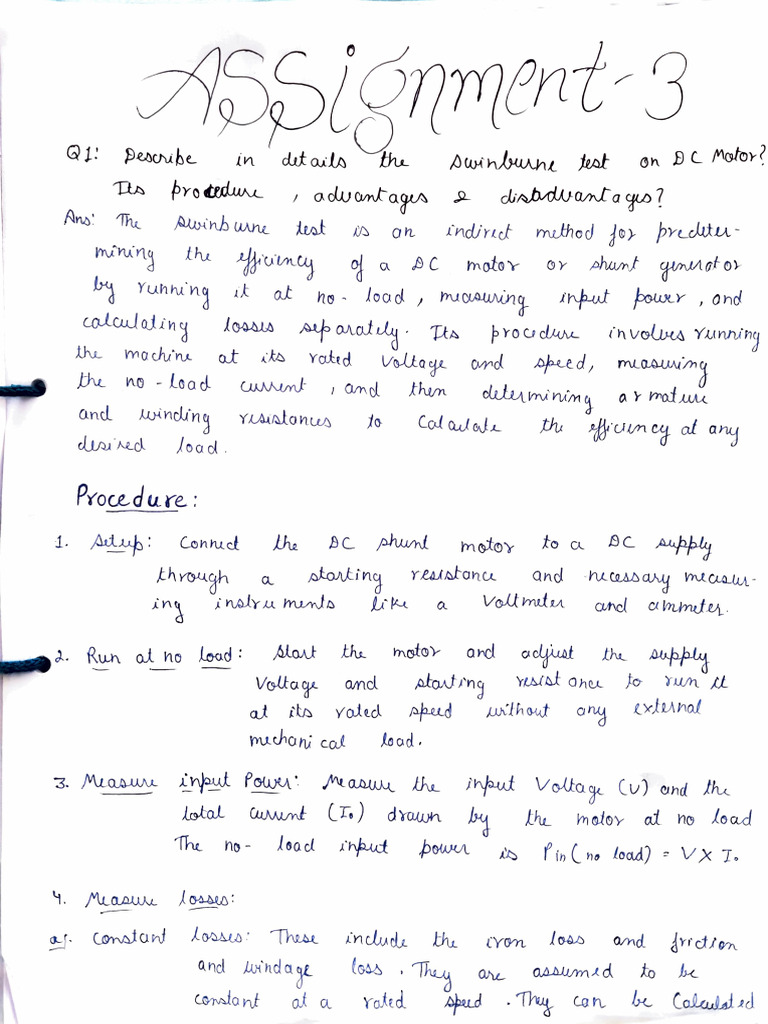 ASSignment-3
Q1: Describe in details the swinburne test on DC Motor?
Its procedure, advantages & disadvantages?
Ans: The swinburne test is an indirect method for predeter-
mining the efficiency of a DC motor or shunt generator
by running it at no-load, measuring input power, and
calculating losses separately. Its procedure involves running
the machine at its rated voltage and speed, measuring
the no-load current, and then determining armature
and winding resistances to Calculate the efficiency at any
desired load.
Procedure:
1. Setup: Connect the DC shunt motor to a DC supply
through a starting resistance and necessary measur-
ing instruments like a Voltmeter and ammeter.
2. Run at no load: Start the motor and adjust the supply
Voltage and starting resistance to run it
at its rated speed without any external
mechanical load.
3. Measure input Power: Measure the input Voltage (V) and the
total current (I₀) drawn by the motor at no load
The no-load input power is Pin(no load) = V X I₀
4. Measure losses:
a). Constant losses: These include the iron loss and friction
and windage loss. They are assumed to be
constant at a rated speed. They can be Calculated